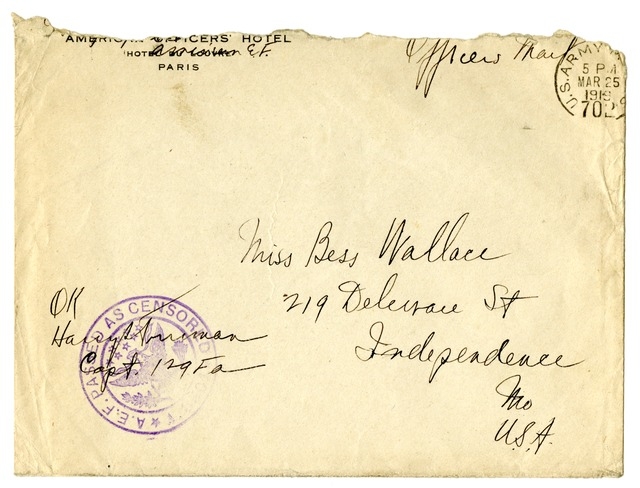 AMERICAN OFFICERS' HOTEL
HOTEL DU LOUVRE
PARIS
E.F.
Officers Mail
U.S. ARMY
5 PM
MAR 25
1919
702
Miss Bess Wallace
219 Delaware St
Independence
Mo
U.S.A.
OK
Harry S Truman
Capt. 129 FA
A.E.F. PASSED AS CENSORED